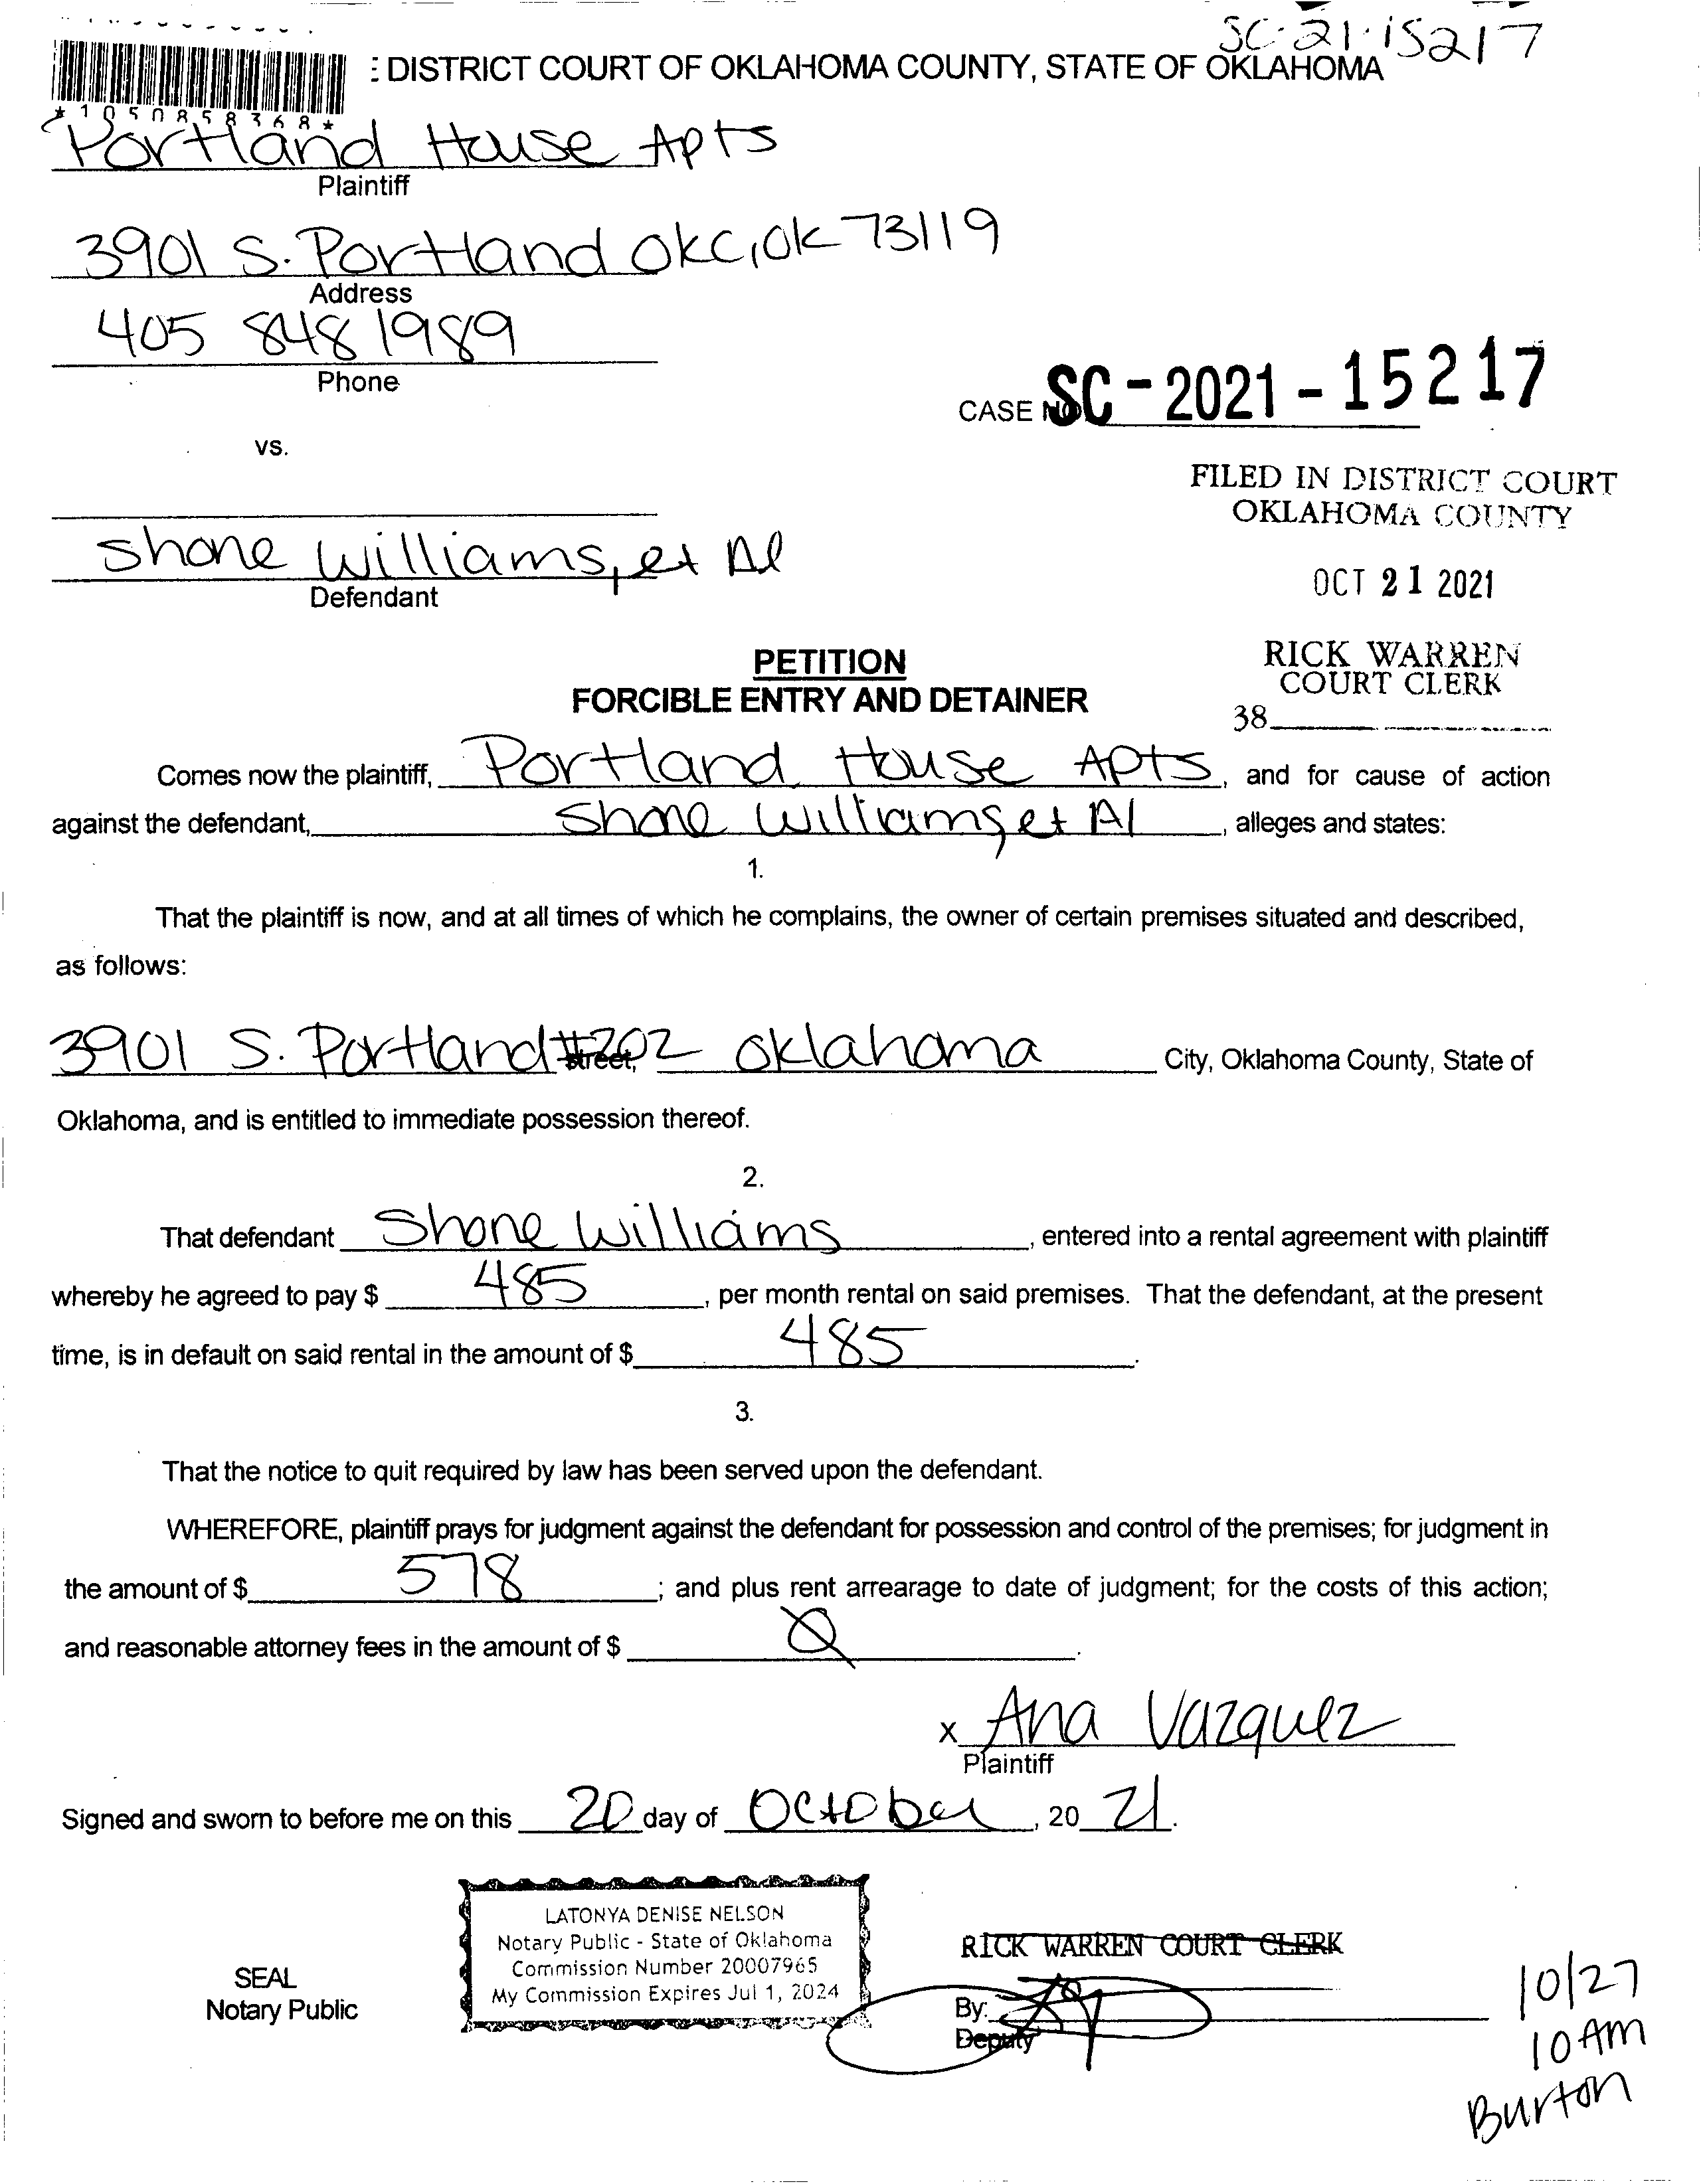 SC-21-15217
: DISTRICT COURT OF OKLAHOMA COUNTY, STATE OF OKLAHOMA
*1050858368*
Portland House Apts
Plaintiff
3901 S. Portland OKC, OK 73119
Address
405 848 1989
Phone
CASE NO SC-2021-15217
vs.
FILED IN DISTRICT COURT
OKLAHOMA COUNTY
Shane Williams, et Al
Defendant
OCT 21 2021
RICK WARREN
COURT CLERK
38
PETITION
FORCIBLE ENTRY AND DETAINER
Comes now the plaintiff, Portland House Apts, and for cause of action
against the defendant, Shane Williams, et Al, alleges and states:
1.
That the plaintiff is now, and at all times of which he complains, the owner of certain premises situated and described,
as follows:
3901 S. Portland #202 street, Oklahoma City, Oklahoma County, State of
Oklahoma, and is entitled to immediate possession thereof.
2.
That defendant Shane Williams, entered into a rental agreement with plaintiff
whereby he agreed to pay $ 485, per month rental on said premises. That the defendant, at the present
time, is in default on said rental in the amount of $ 485.
3.
That the notice to quit required by law has been served upon the defendant.
WHEREFORE, plaintiff prays for judgment against the defendant for possession and control of the premises; for judgment in
the amount of $ 578; and plus rent arrearage to date of judgment; for the costs of this action;
and reasonable attorney fees in the amount of $ 0.
x Ana Vazquez
Plaintiff
Signed and sworn to before me on this 20 day of October, 20 21.
LATONYA DENISE NELSON
Notary Public - State of Oklahoma
Commission Number 20007965
My Commission Expires Jul 1, 2024
SEAL
Notary Public
RICK WARREN COURT CLERK
By:
Deputy
10/27
10 AM
Burton